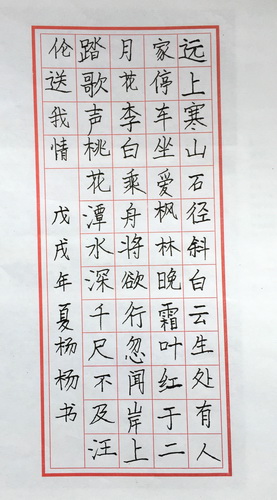 远上寒山石径斜白云生处有人
家停车坐爱枫林晚霜叶红于二
月花李白乘舟将欲行忽闻岸上
踏歌声桃花潭水深千尺不及汪
伦送我情 戊戌年夏杨杨书